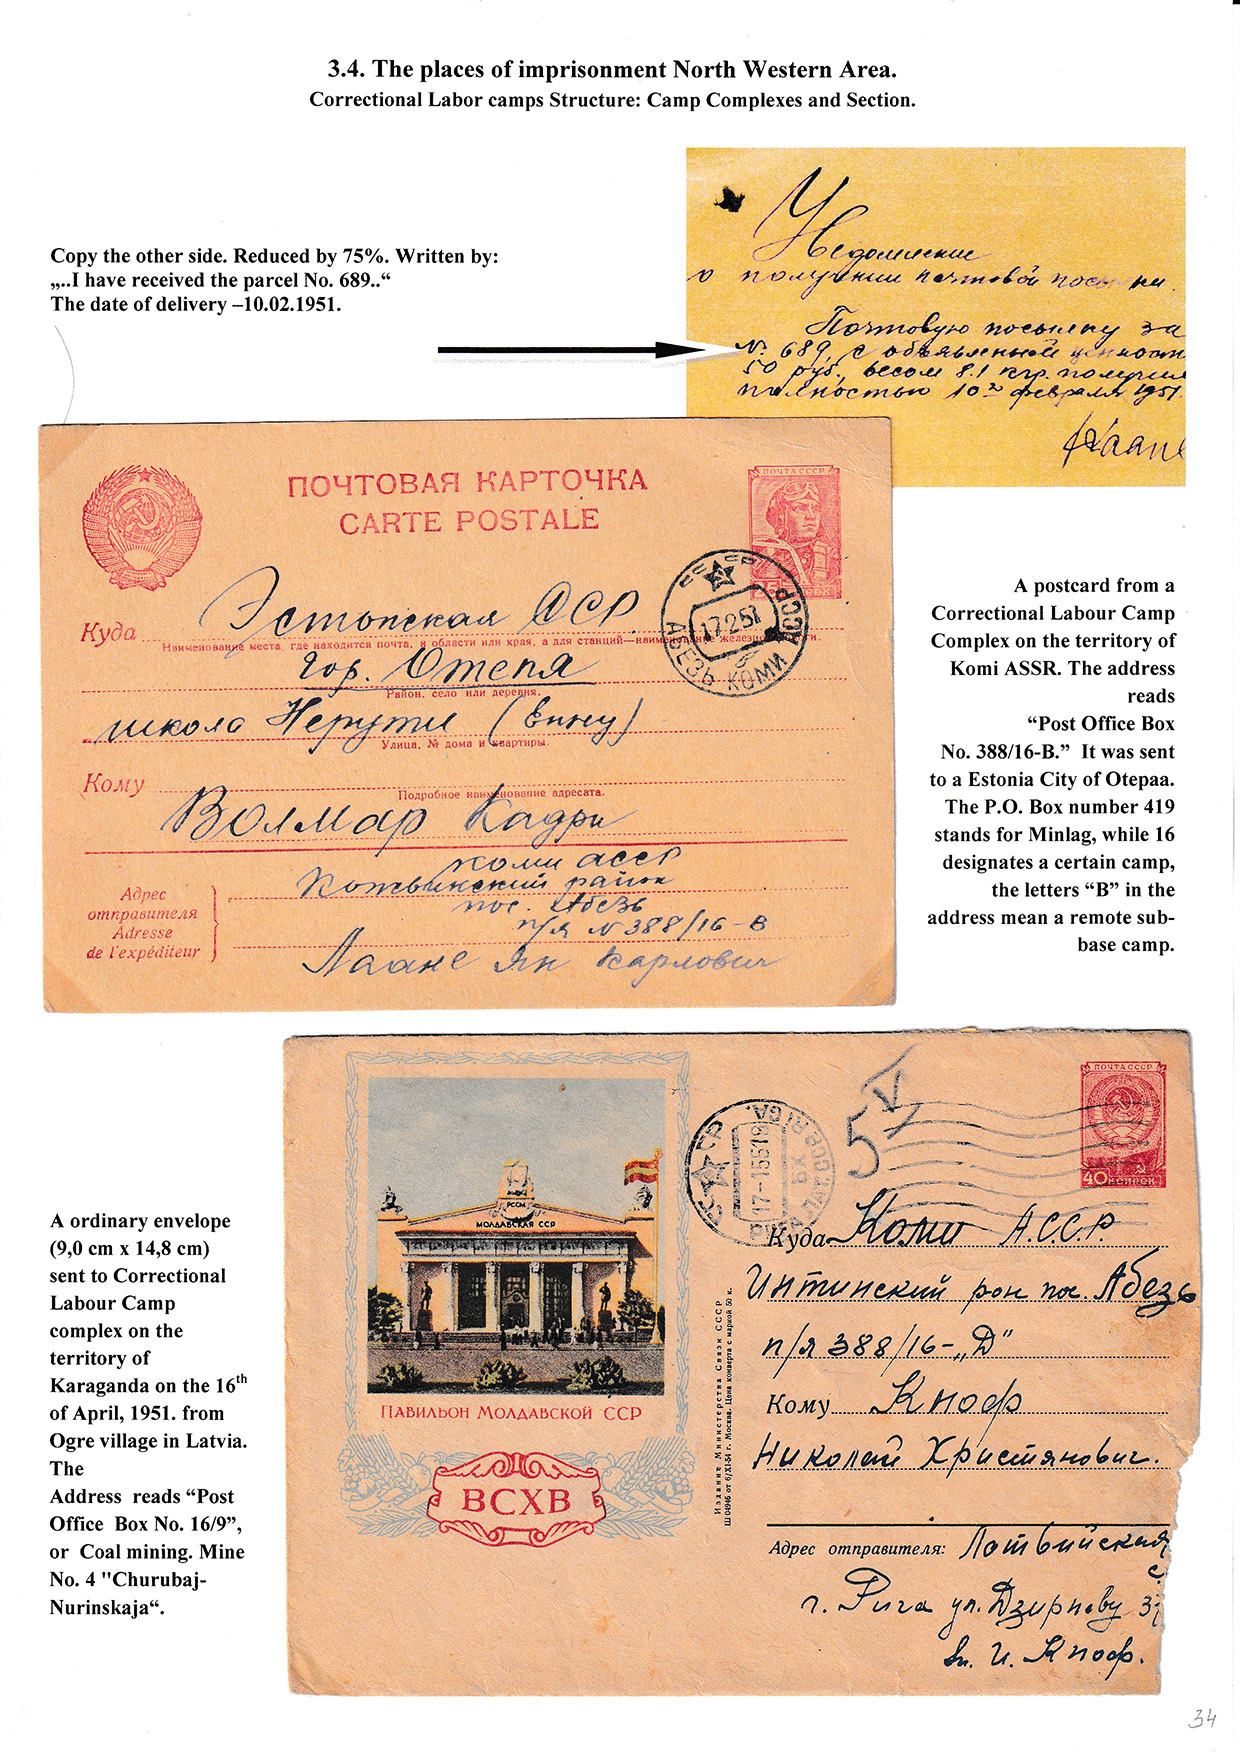 3.4. The places of imprisonment North Western Area.
Correctional Labor camps Structure: Camp Complexes and Section.
Copy the other side. Reduced by 75%. Written by:
„..I have received the parcel No. 689..“
The date of delivery –10.02.1951.
Уведомление
о получении почтовой посылки.
Почтовую посылку за
№ 689, с объявленной ценност
50 руб., весом 8.1 кгр. получил
полностью 10го февраля 1951.
ПОЧТОВАЯ КАРТОЧКА
CARTE POSTALE
ПОЧТА СССР
СССР
17.2.51
АБЕЗЬ КОМИ АССР
Куда Эстонская ССР
Наименование места, где находится почта, и области или края, а для станций—наименование железной
гор. Отепя
Район, село или деревня.
школа Нерути (Винну)
Улица, № дома и квартиры.
Кому
Подробное наименование адресата.
Волмар Кадри
Адрес
отправителя
Adresse
de l'expéditeur
Коми АССР
Кожвинский район
пос. Абезь
п/я N 388/16-В
Лаане Ян Карлович
A postcard from a
Correctional Labour Camp
Complex on the territory of
Komi ASSR. The address
reads
“Post Office Box
No. 388/16-B.” It was sent
to a Estonia City of Otepaa.
The P.O. Box number 419
stands for Minlag, while 16
designates a certain camp,
the letters “B” in the
address mean a remote sub-
base camp.
A ordinary envelope
(9,0 cm x 14,8 cm)
sent to Correctional
Labour Camp
complex on the
territory of
Karaganda on the 16th
of April, 1951. from
Ogre village in Latvia.
The
Address reads “Post
Office Box No. 16/9”,
or Coal mining. Mine
No. 4 "Churubaj-
Nurinskaja“.
РССМ
МОЛДАВСКАЯ ССР
ПАВИЛЬОН МОЛДАВСКОЙ ССР
ВСХВ
Издание Министерства Связи СССР
Ш 04946 от 6/XI-54 г. Москва. Цена конверта с маркой 50 к.
СССР
RIGA.
17-15519
РИГА ЛАТ.ССР
5 V
ПОЧТА СССР
40 КОПЕЕК
Куда Коми А.С.С.Р.
Интинский рон пос. Абезь
п/я 388/16-„Д"
Кому Кноф
Николай Христянович.
Адрес отправителя: Латвийская
с.
г. Рига ул. Дзирнову
И. Кноф.
34